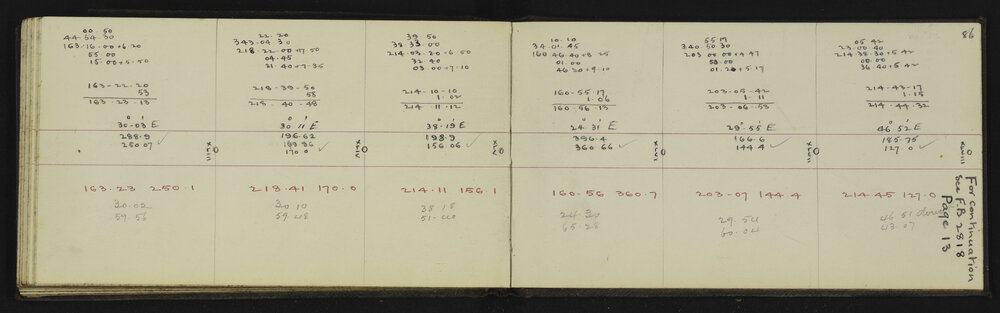 00.50
44.54.30
163.16.00+6.20
55.00
15.00+5.50
163-22.20
53
163.23.13
30.03 E
288.9
250.07
163.23 250.1
30.02
59.56
22.20
343.04.30
218.22.00+17.50
04.45
21.40+7.35
218.39.50
58
218.40.48
30 11 E
196.62
170.0
218.41 170.0
30 10
59.48
39 50
38 33.00
214.03.20-6.50
32.40
03.00+7.10
214-10-10
1.02
214.11.12
38.19 E
198.9
156.06
214.11 156.1
38 18
51.40
10.10
34.01.45
160.46.40+8.25
01.00
46 20+9.10
160.55.17
1.06
160.56.13
24 31 E
396.4
360.66
160.56 360.7
24.30
65.28
55 17
340 50 30
203 00.00+4.47
58.00
01.20+5.17
203.05.42
1.11
203.06.53
29.55 E
166.6
144.4
203-07 144.4
29.54
60.04
86
05.42
23.00.40
214 38.30+5.42
00.00
36 40+5.42
214.43.17
1.15
214.44.32
46 52 E
185.75
127.0
214.45 127.0
46 51
43.07
For continuation
See F.B 2818
Page 13